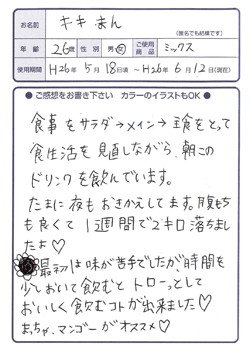 お名前 キキまん
(匿名でも結構です)
年齢 26歳 性別 男・女 ご使用商品 ミックス
使用期間 H26年5月18日頃 ~ H26年6月12日(現在)
●ご感想をお書き下さい カラーのイラストもOK●
食事をサラダ→メイン→主食をとって
食生活を見直しながら、朝この
ドリンクを飲んでいます。
たまに夜もおきかえしてます。腹もち
も良くて1週間で2キロ落ちまし
たよ♡
最初は味が苦手でしたが、時間を
少しおいて飲むとトローッとして
おいしく飲むコトが出来ました♡
まっちゃ、マンゴーがオススメ♡